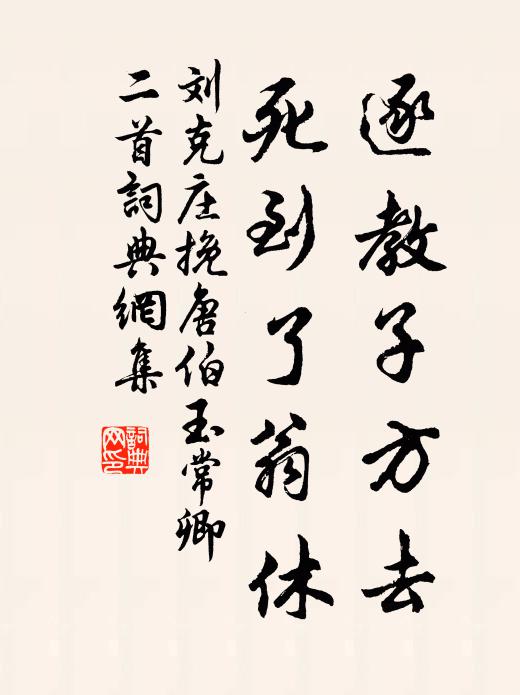 逐教子方去
死到了翁休
刘克庄挽唐伯玉常卿
二首詞典網集
詞典
网印